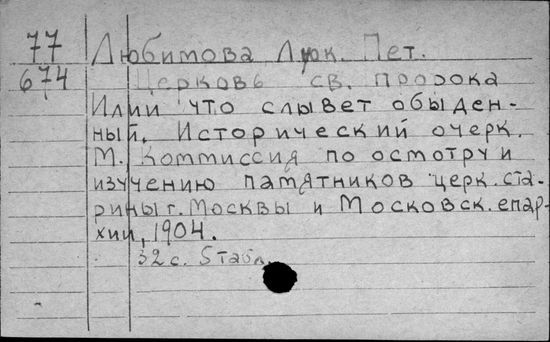 77 Любимова Лук. Пет.
674 Церковь св. пророка
Илии что слывет обыден-
ный. Исторический очерк.
М. Коммиссия по осмотру и
изучению памятников церк. ста-
рины г. Москвы и Московск. епар-
хии, 1904.
32 с. 5 табл.